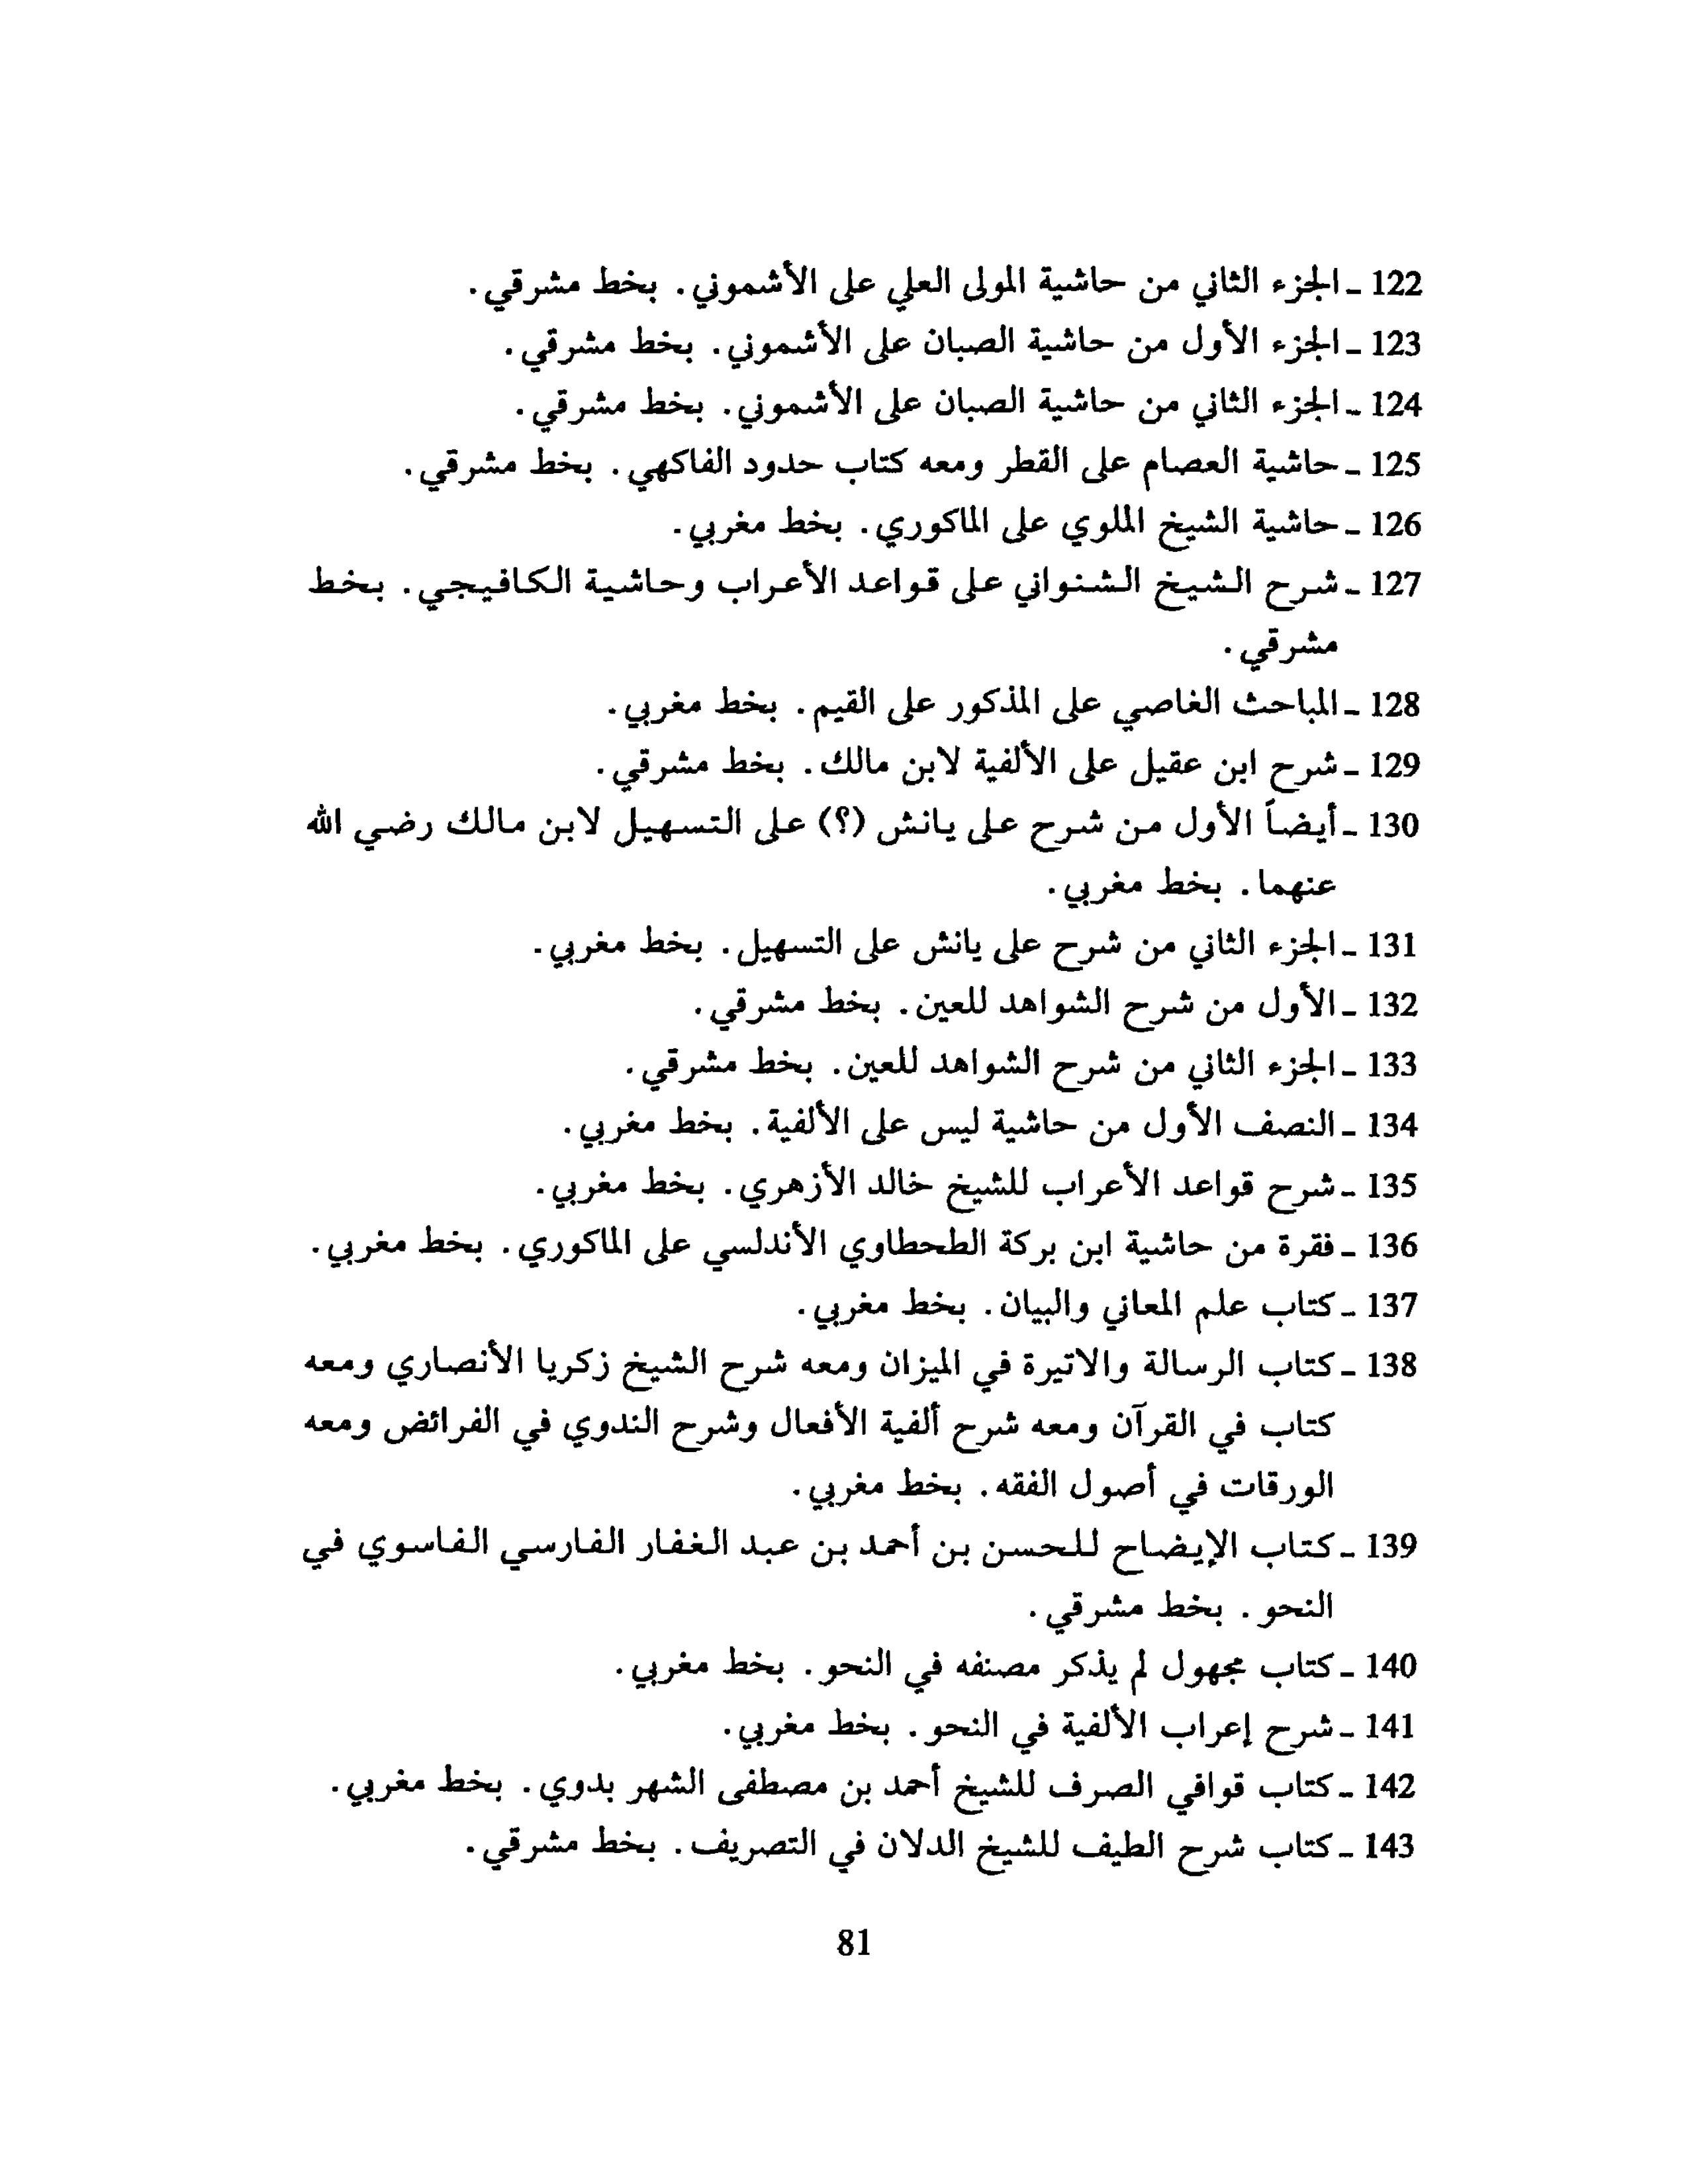 122 ـ الجزء الثاني من حاشية المولى العلي على الأشموني. بخط مشرقي.
123 ـ الجزء الأول من حاشية الصبان على الأشموني. بخط مشرقي.
124 ـ الجزء الثاني من حاشية الصبان على الأشموني. بخط مشرقي.
125 ـ حاشية العصام على القطر ومعه كتاب حدود الفاكهي. بخط مشرقي.
126 ـ حاشية الشيخ الملوي على الماكوري. بخط مغربي.
127 ـ شرح الشيخ الشنواني على قواعد الأعراب وحاشية الكافيجي. بخط
مشرقي.
128 ـ المباحث الغاصي على المذكور على القيم. بخط مغربي.
129 ـ شرح ابن عقيل على الألفية لابن مالك. بخط مشرقي.
130 ـ أيضاً الأول من شرح على يانش (؟) على التسهيل لابن مالك رضي الله
عنهما. بخط مغربي.
131 ـ الجزء الثاني من شرح على يانش على التسهيل. بخط مغربي.
132 ـ الأول من شرح الشواهد للعين. بخط مشرقي.
133 ـ الجزء الثاني من شرح الشواهد للعين. بخط مشرقي.
134 ـ النصف الأول من حاشية ليس على الألفية. بخط مغربي.
135 ـ شرح قواعد الأعراب للشيخ خالد الأزهري. بخط مغربي.
136 ـ فقرة من حاشية ابن بركة الطحطاوي الأندلسي على الماكوري. بخط مغربي.
137 ـ كتاب علم المعاني والبيان. بخط مغربي.
138 ـ كتاب الرسالة والاتيرة في الميزان ومعه شرح الشيخ زكريا الأنصاري ومعه
كتاب في القرآن ومعه شرح ألفية الأفعال وشرح الندوي في الفرائض ومعه
الورقات في أصول الفقه. بخط مغربي.
139 ـ كتاب الإيضاح للحسن بن أحمد بن عبد الغفار الفارسي الفاسوي في
النحو. بخط مشرقي.
140 ـ كتاب مجهول لم يذكر مصنفه في النحو. بخط مغربي.
141 ـ شرح إعراب الألفية في النحو. بخط مغربي.
142 ـ كتاب قوافي الصرف للشيخ أحمد بن مصطفى الشهر بدوي. بخط مغربي.
143 ـ كتاب شرح الطيف للشيخ الدلان في التصريف. بخط مشرقي.
81